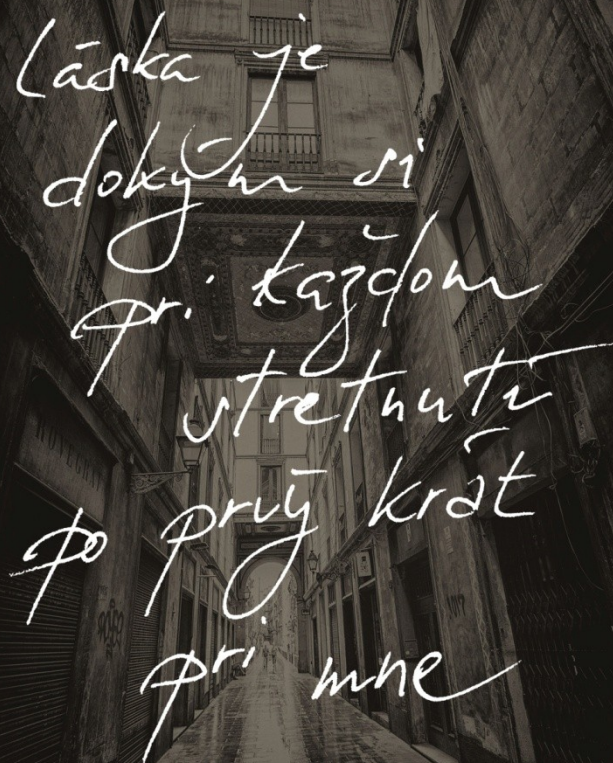 Láska je
dokým si
pri každom
stretnutí
po prvý krát
pri mne